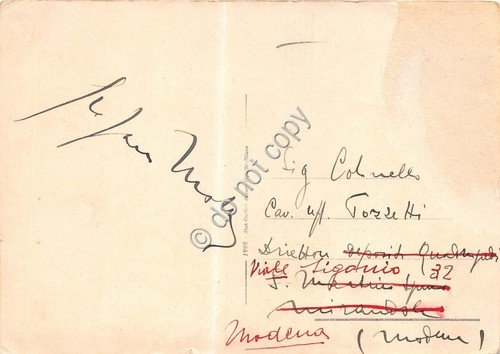 Sig Colonello
Cav. uff. Tozzetti
Direttore Deposito Quadrupedi
Viale Sigonio 32
S. Martino Spino
Mirandola
Modena (Modena)
© do not copy